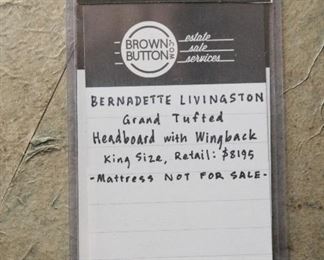 BROWN
BUTTON
.COM
estate
sale
services
BERNADETTE LIVINGSTON
Grand Tufted
Headboard with Wingback
King Size, Retail: $8195
-Mattress NOT FOR SALE-